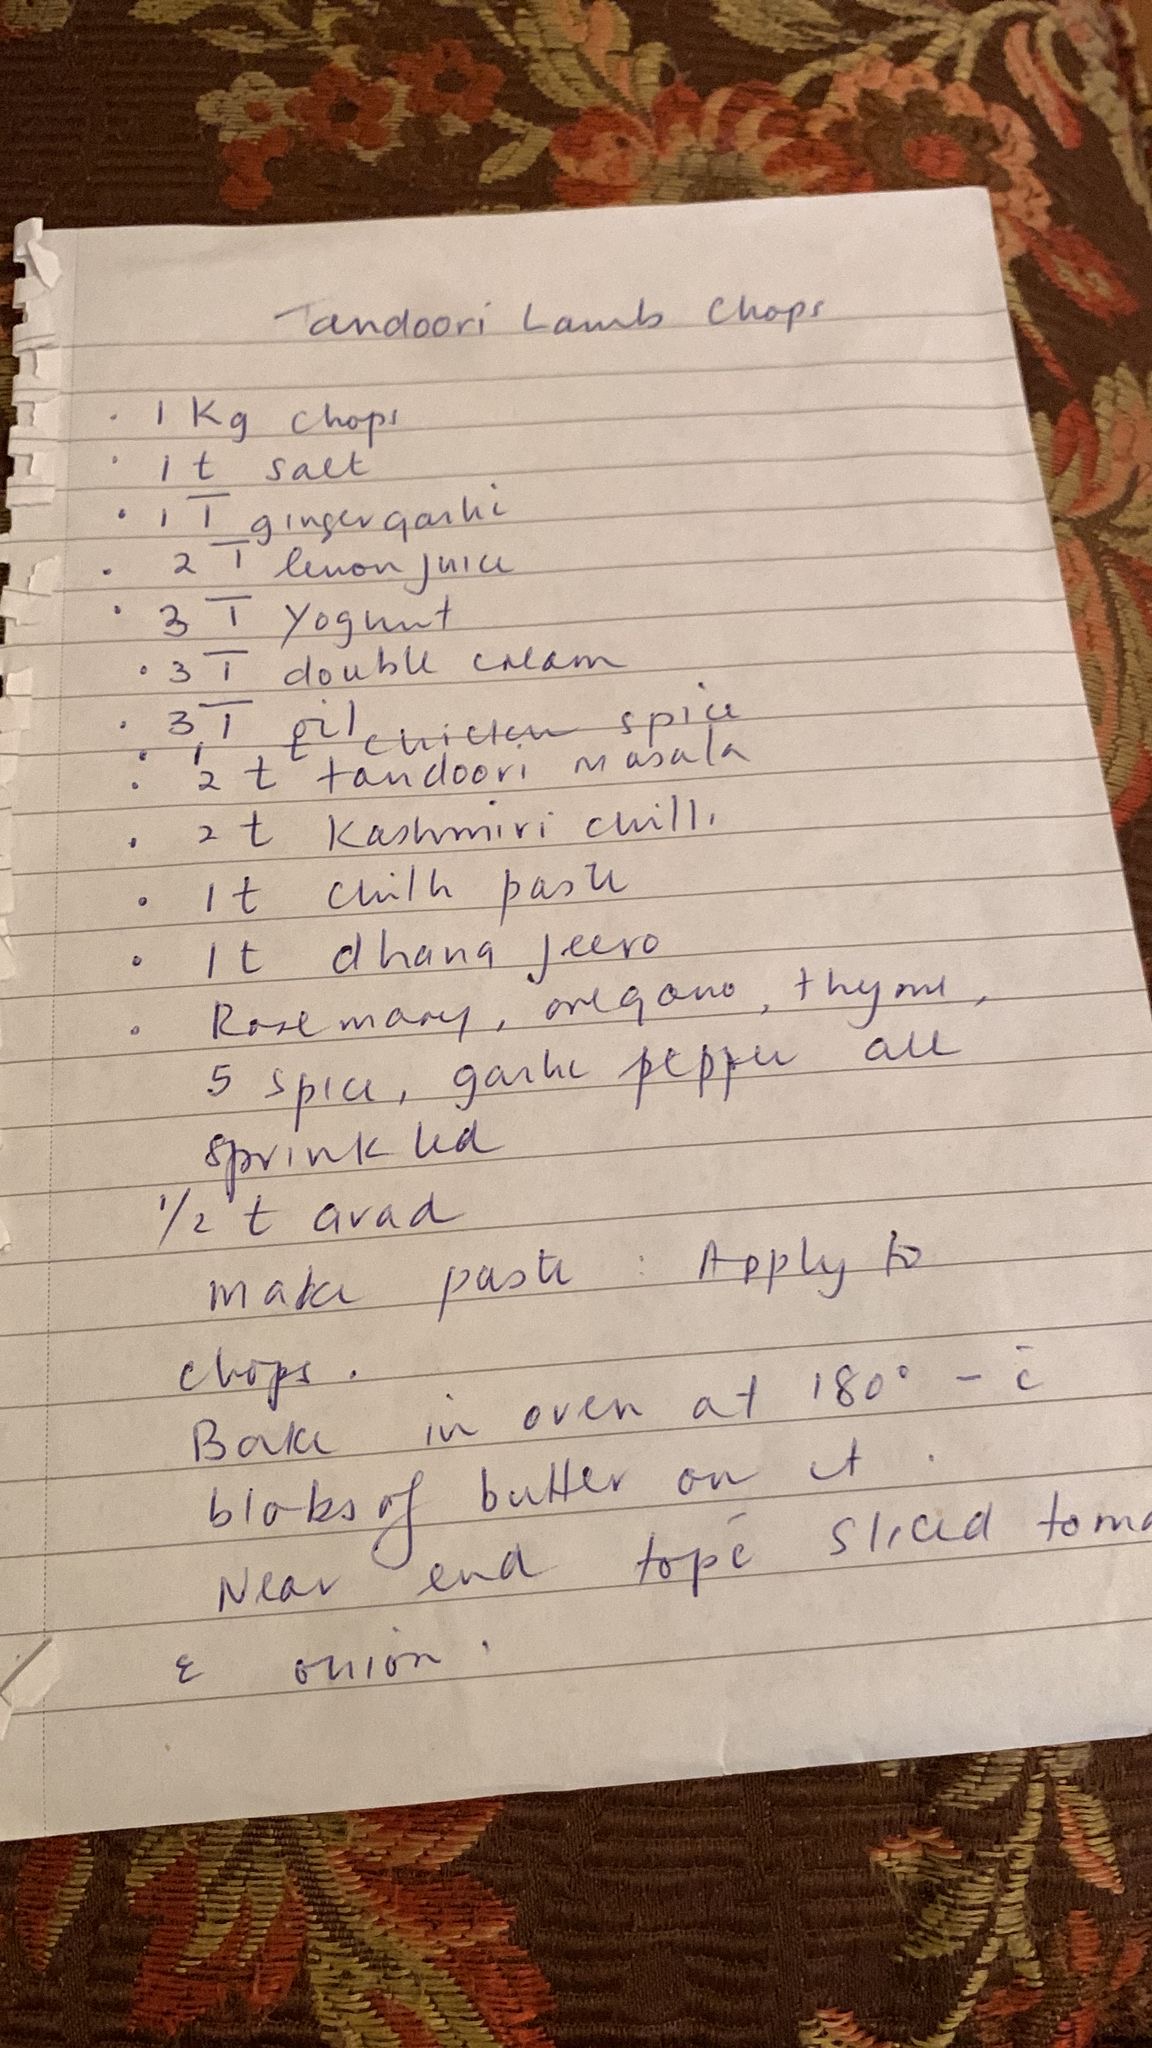 Tandoori Lamb Chops
· 1 Kg chops
· 1 t salt
· 1 T ginger garlic
· 2 T lemon juice
· 3 T Yoghurt
· 3 T double cream
· 3 T oil
· 1 t chicken spice
· 2 t tandoori masala
· 2 t Kashmiri chilli
· 1 t chilli paste
· 1 t dhana jeero
· Rosemary, oregano, thyme,
5 spice, garlic pepper all
sprinkled
1/2 t arad
make paste : Apply to
chops.
Bake in oven at 180° - c̄
bloks of butter on it.
Near end top c̄ sliced toma
& onion.